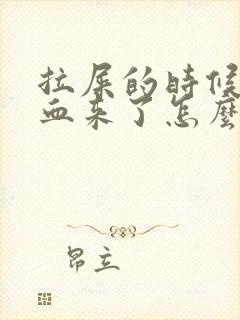 拉屎的時候
血来了怎麽
昂立